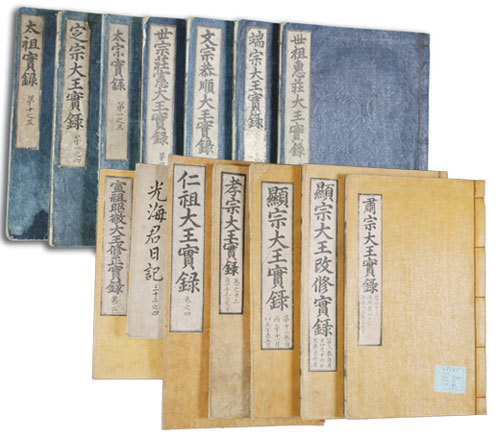 太祖實錄
第十之五
定宗大王實錄
太宗實錄
第一之三
世宗莊憲大王實錄
文宗恭順大王實錄
端宗大王實錄
世祖惠莊大王實錄
宣祖昭敬大王修正實錄
第二
光海君日記
三十三之四
仁祖大王實錄
卷之四
孝宗大王實錄
顯宗大王實錄
顯宗大王改修實錄
肅宗大王實錄